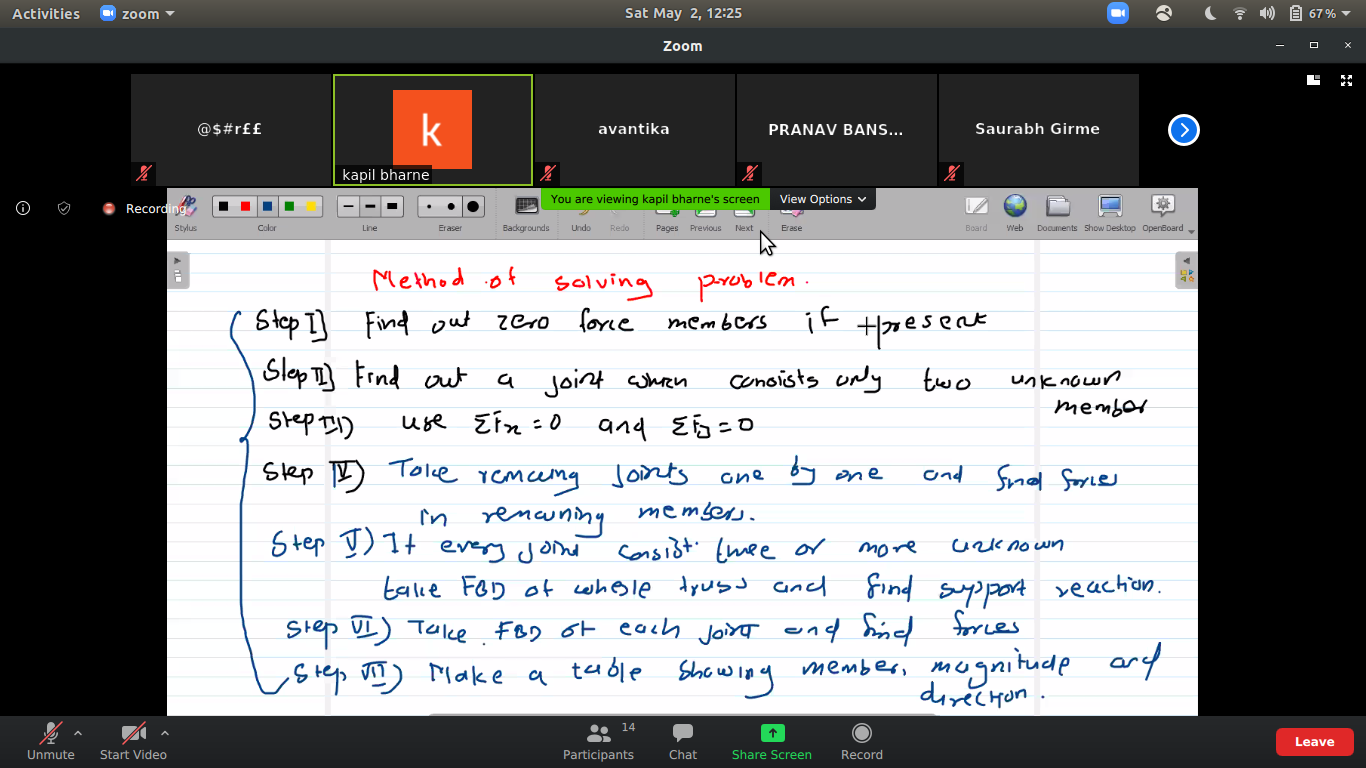 Activities zoom Sat May 2, 12:25 67%
Zoom
@$#r££ k avantika PRANAV BANS... Saurabh Girme
kapil bharne
Recording You are viewing kapil bharne's screen View Options
Stylus Color Line Eraser Backgrounds Undo Redo Pages Previous Next Erase Board Web Documents Show Desktop OpenBoard
Method of solving problem.
Step I] Find out zero force members if present
Step II] Find out a joint which consists only two unknown
member
Step III) use ΣFx = 0 and ΣFy = 0
Step IV) Take remaining joints one by one and find forces
in remaining members.
Step V) If every joint consist three or more unknown
take FBD of whole truss and find support reaction.
Step VI) Take FBD of each joint and find forces
Step VII) Make a table showing member, magnitude and
direction.
14
Unmute Start Video Participants Chat Share Screen Record Leave